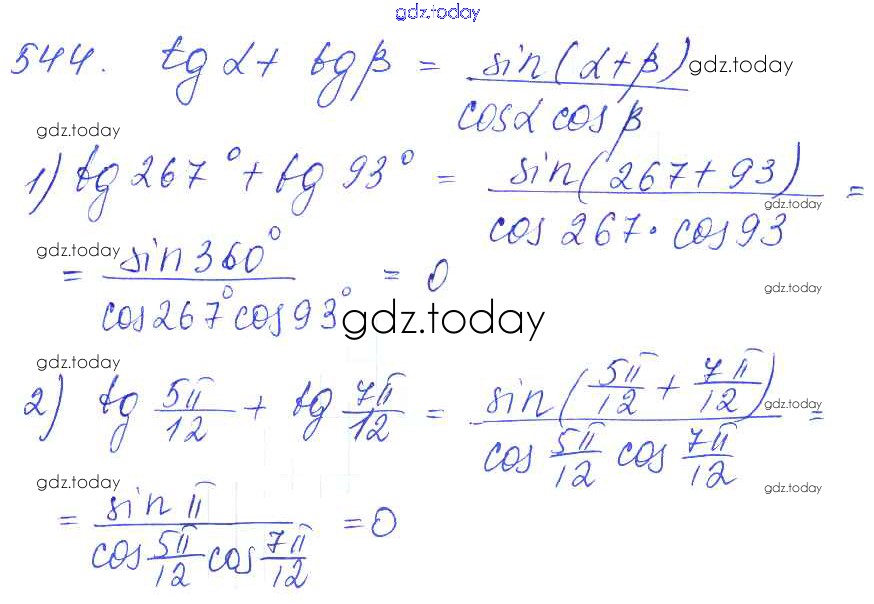 gdz.today
544. tg α + tg β = sin(α+β) / cosα cosβ gdz.today
gdz.today
1) tg 267° + tg 93° = sin(267+93) / cos 267 · cos 93 =
gdz.today
gdz.today
= sin 360° / cos 267° cos 93° = 0
gdz.today
gdz.today
gdz.today
2) tg 5π/12 + tg 7π/12 = sin(5π/12 + 7π/12) / cos 5π/12 cos 7π/12 =
gdz.today
gdz.today
gdz.today
= sin π / cos 5π/12 cos 7π/12 = 0